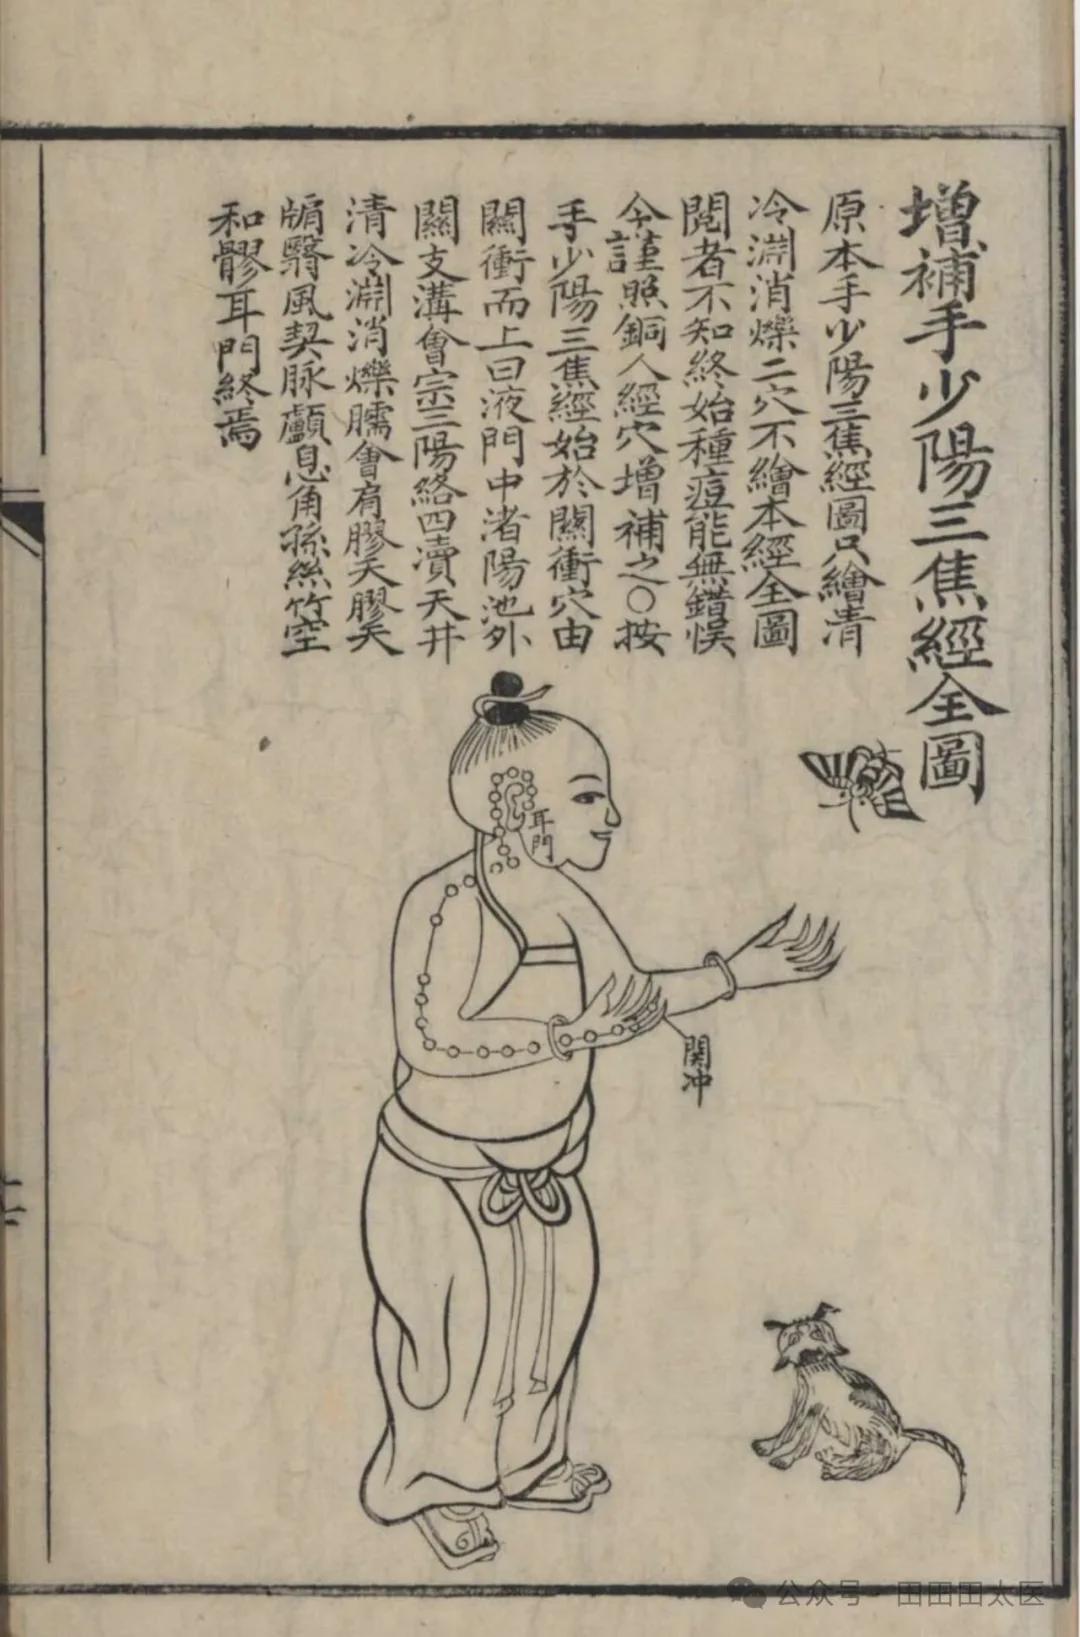 增補手少陽三焦經全圖
原本手少陽三焦經圖只繪清
冷淵消爍二穴不繪本經全圖
閱者不知終始種痘能無錯悞
今謹照銅人經穴增補之○按
手少陽三焦經始於關衝穴由
關衝而上曰液門中渚陽池外
關支溝會宗三陽絡四瀆天井
清冷淵消爍臑會肩膠天膠天
牖翳風契脉顱息角孫絲竹空
和髎耳門終焉
耳門
関冲
公众号·田田田太医